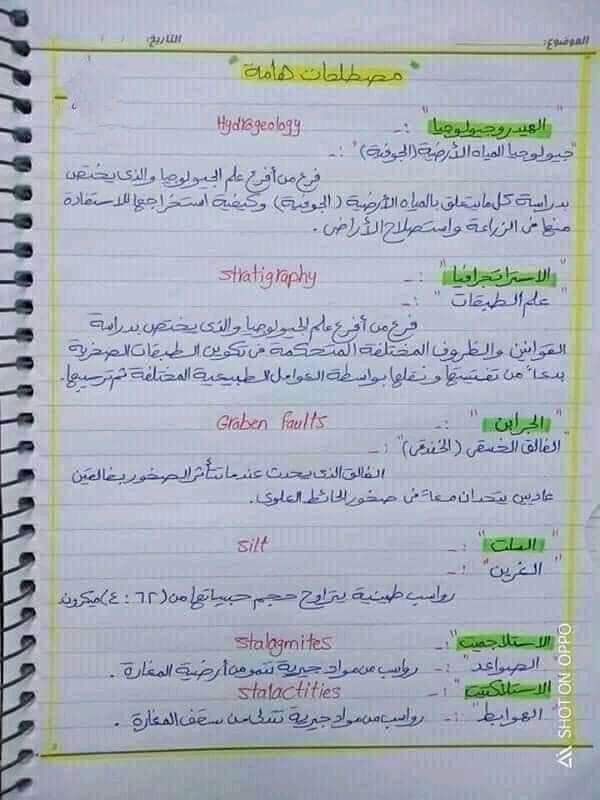 الموضوع: التاريخ: / /
مصطلحات هامة
"الهيدروجيولوجيا" :- Hydrogeology
"جيولوجيا المياه الأرضية (الجوفية)" :-
فرع من أفرع علم الجيولوجيا والذى يختص
بدراسة كل ما يتعلق بالمياه الأرضية (الجوفية) وكيفية استخراجها للاستفادة
منها فى الزراعة واستصلاح الأراضى .
"الاستراتجرافيا" :- stratigraphy
"علم الطبقات" :-
فرع من أفرع علم الجيولوجيا والذى يختص بدراسة
القوانين والظروف المختلفة المتحكمة فى تكوين الطبقات الصخرية
بدءاً من تفتيتها ونقلها بواسطة العوامل الطبيعية المختلفة ثم ترسيبها.
"الجرابن" :- Graben faults
"الفالق الخسفى (الخندقى)" :-
الفالق الذى يحدث عندما تتأثر الصخور بفالقين
عاديين يتحدان معاً فى صخور الحائط العلوى.
"السلت" :- silt
"الغرين" :-
رواسب طينية يتراوح حجم حبيباتها من (٦٢ : ٤) ميكروند
"الاستلاجميت" :- stalagmites
"الصواعد" :- رواسب من مواد جيرية تنمو من أرضية المغارة .
"الاستالكتيت" :- stalactities
"الهوابط" :- رواسب من مواد جيرية تتدلى من سقف المغارة .
SHOT ON OPPO